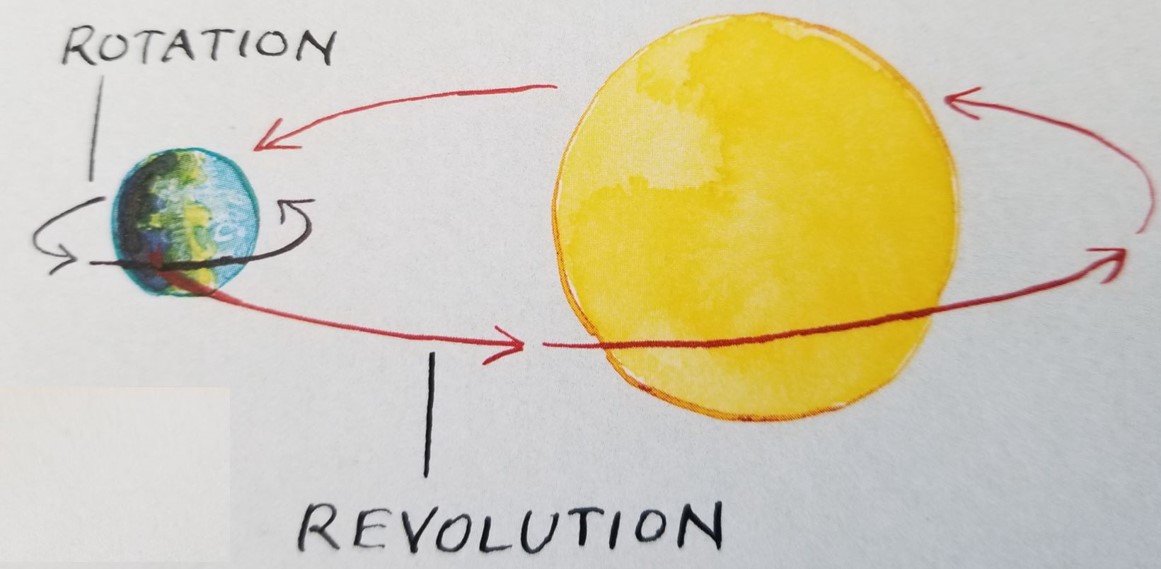 ROTATION
REVOLUTION